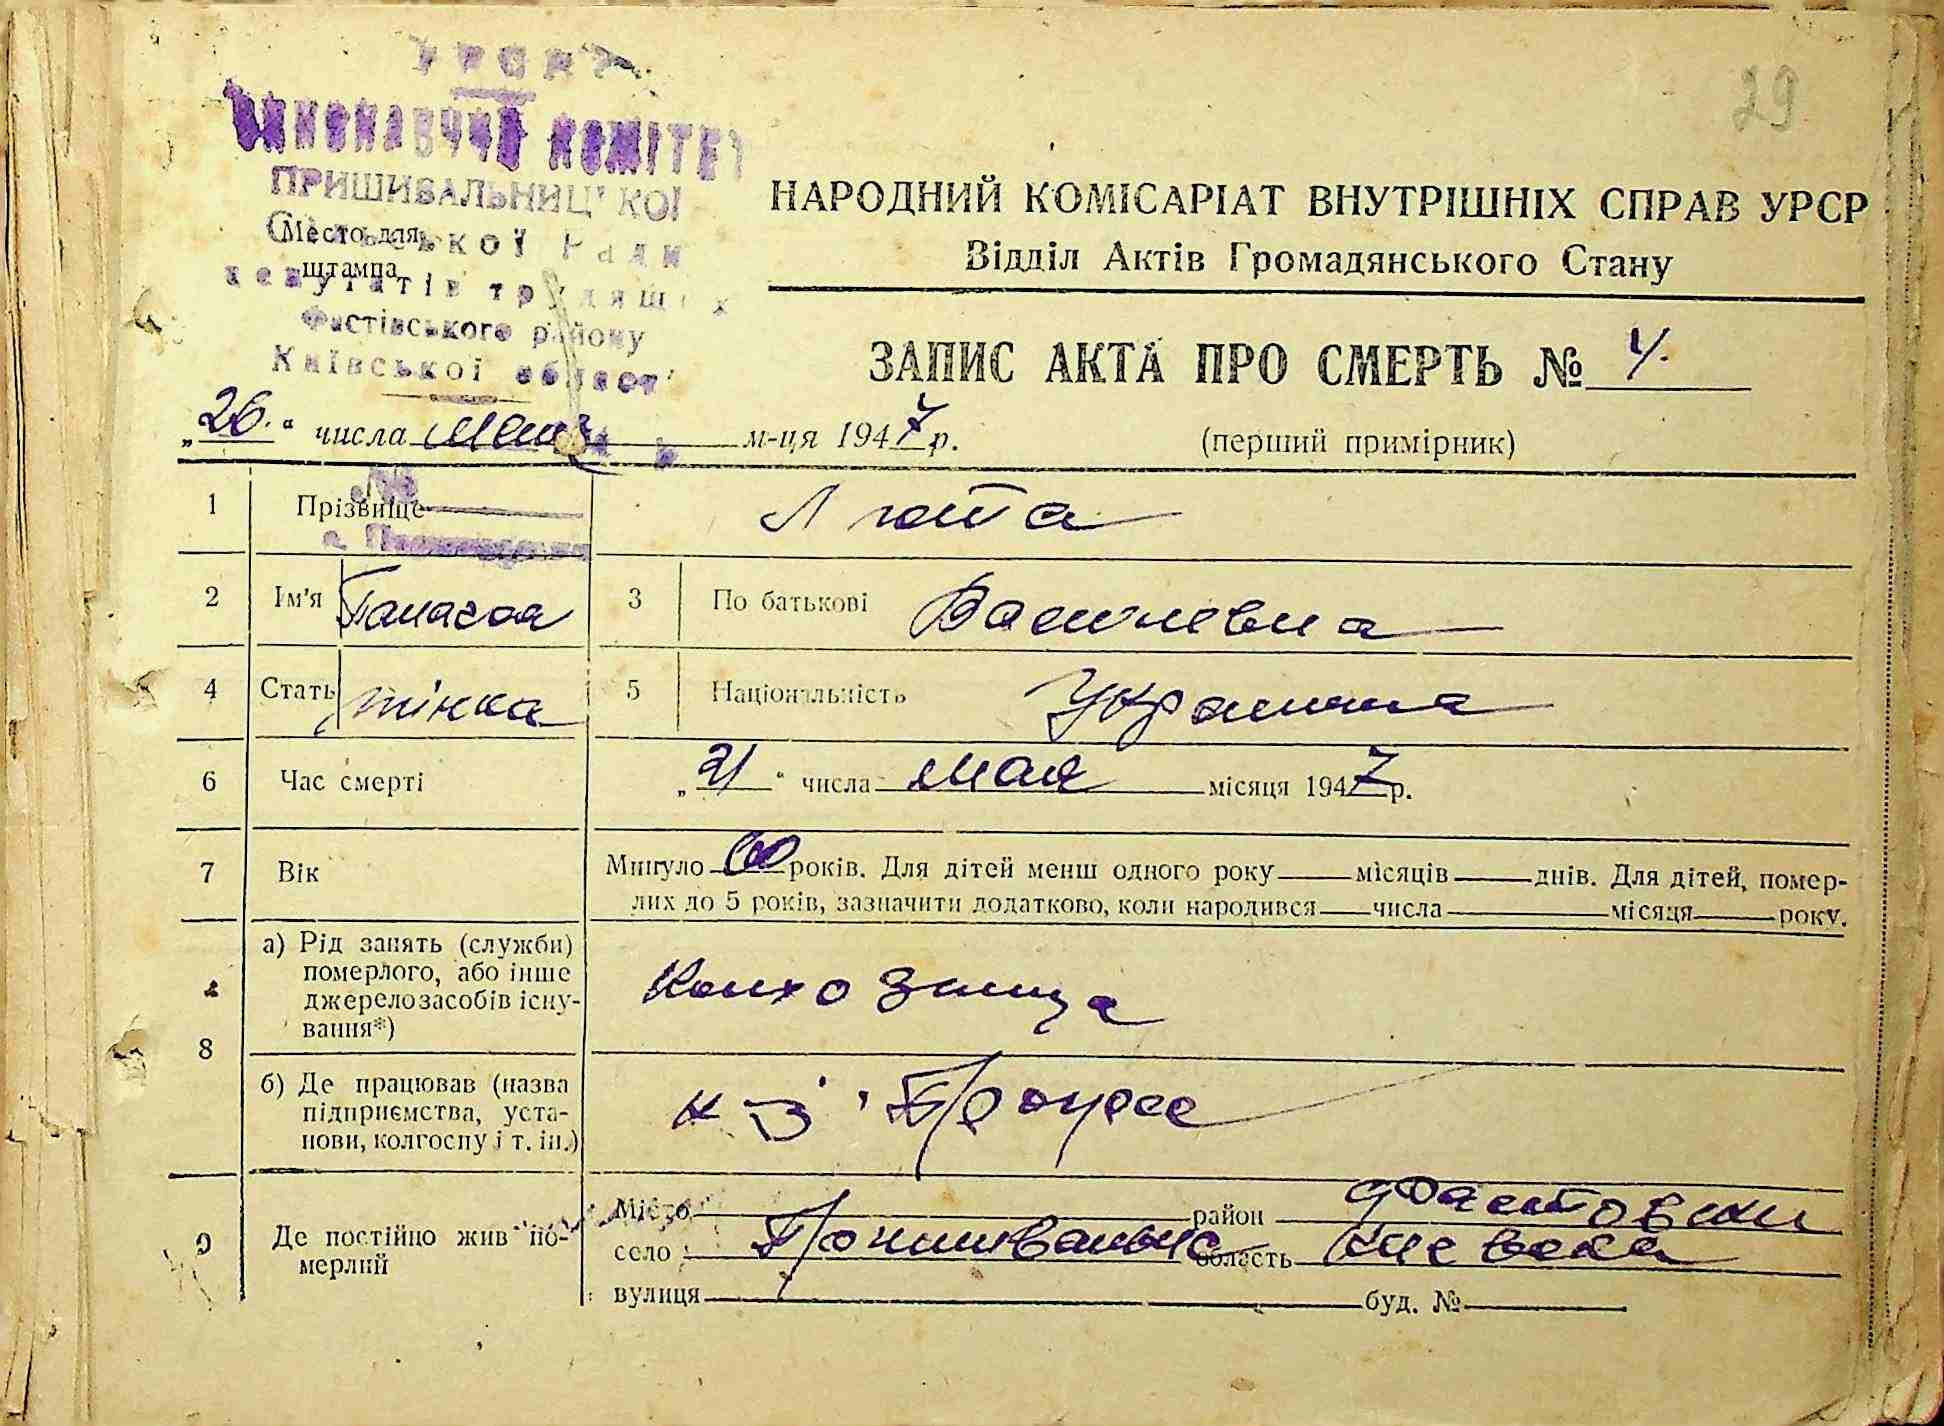 29
УРСР
ВИКОНАВЧИЙ КОМІТЕТ
ПРИШИВАЛЬНИЦЬКОЇ
Сільської Ради
депутатів трудящих
Фастівського району
Київської област
Место для
штампа
НАРОДНИЙ КОМІСАРІАТ ВНУТРІШНІХ СПРАВ УРСР
Відділ Актів Громадянського Стану
ЗАПИС АКТА ПРО СМЕРТЬ № 4.
„26." числа мая м-ця 1947 р. (перший примірник)
№
1 Прізвище Люта
2 Ім'я 3 По батькові Василевна
4 Стать жінка 5 Національність Украинка
6 Час смерті „21" числа мая місяця 1947 р.
7 Вік Минуло 60 років. Для дітей менш одного року місяців днів. Для дітей, помер-
лих до 5 років, зазначити додатково, коли народився числа місяця року.
8 а) Рід занять (служби)
померлого, або інше
джерело засобів існу-
вання*)
Колхозница
б) Де працював (назва
підприємства, уста-
нови, колгоспу і т. ін.)
к-з
9 Де постійно жив по-
мерлий
Місто район Фастовски
село область Киевска
вулиця буд. №